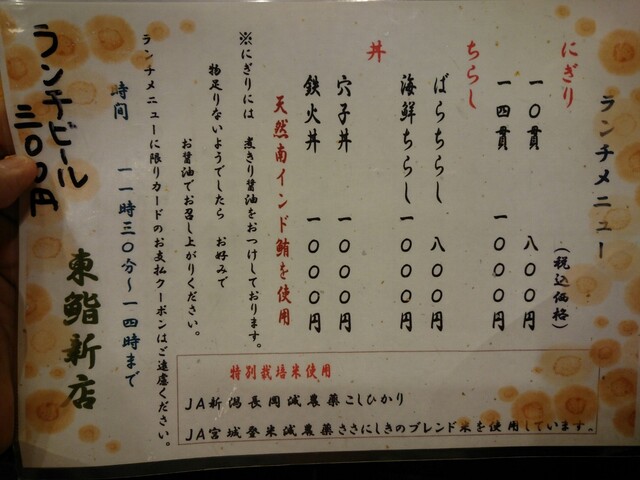 ランチメニュー
(税込価格)
にぎり
一〇貫 八〇〇円
一四貫 一〇〇〇円
ちらし
ばらちらし 八〇〇円
海鮮ちらし 一〇〇〇円
丼
穴子丼 一〇〇〇円
鉄火丼 一〇〇〇円
天然南インド鮪を使用
※にぎりには 煮きり醤油をおつけしております。
物足りないようでしたら お好みで
お醤油でお召し上がりください。
ランチメニューに限りカードのお支払クーポンはご遠慮ください。
時間 一一時三〇分~一四時まで
東鮨新店
ランチビール
三〇〇円
特別栽培米使用
JA新潟長岡減農薬こしひかり
JA宮城登米減農薬ささにしきのブレンド米を使用しています。